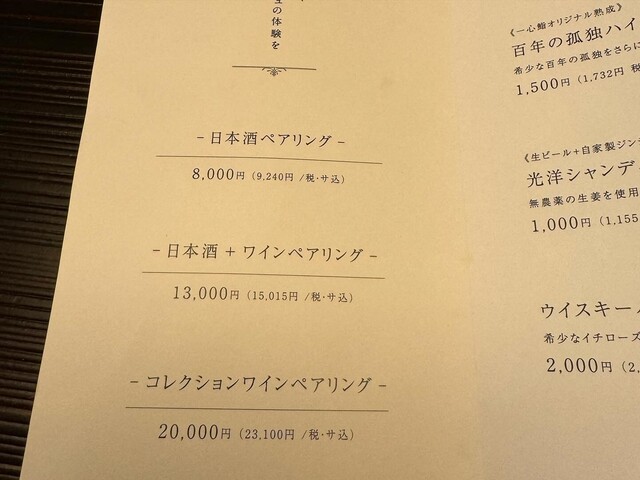 生の体験を
- 日本酒ペアリング -
8,000円 (9,240円 /税・サ込)
- 日本酒 + ワインペアリング -
13,000円 (15,015円 /税・サ込)
- コレクションワインペアリング -
20,000円 (23,100円 /税・サ込)
《一心鮨オリジナル熟成》
百年の孤独ハイ
希少な百年の孤独をさらに
1,500円 (1,732円 税
《生ビール+自家製ジン
光洋シャンデ
無農薬の生姜を使用
1,000円 (1,155
ウイスキー
希少なイチローズ
2,000円 (2,